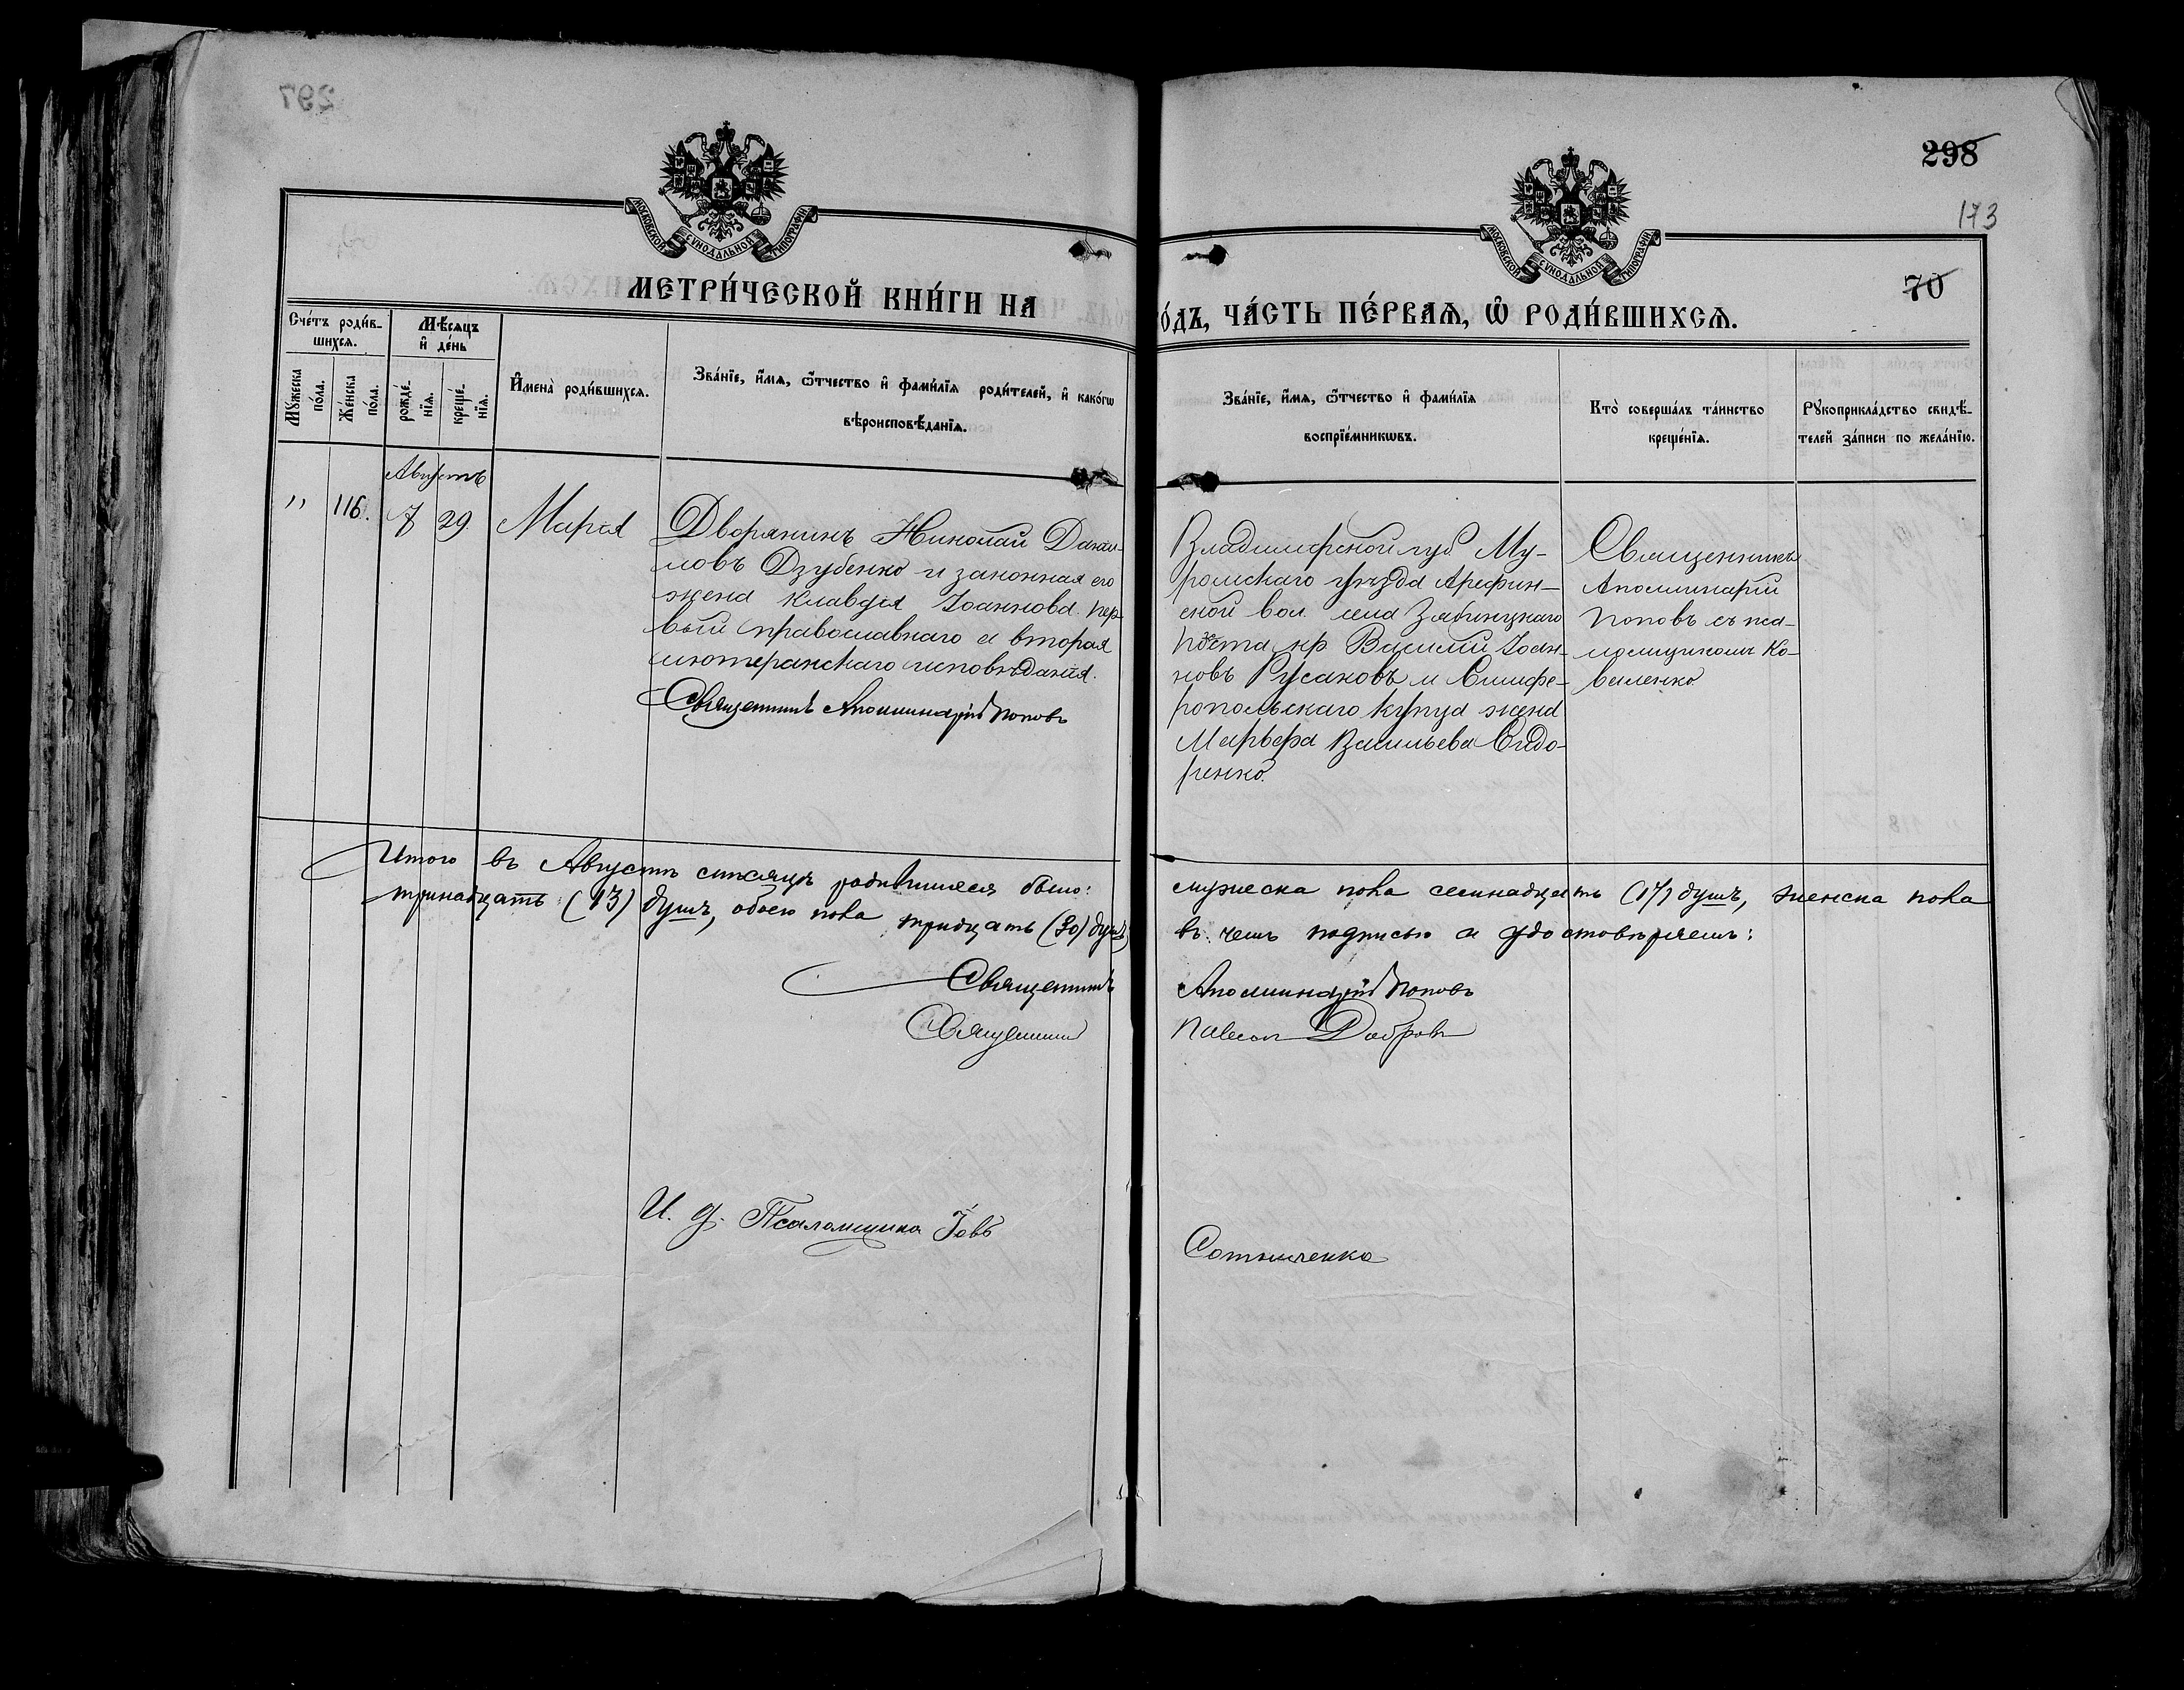 298
173
70
МОСКОВСКОЙ СѴНОДАЛЬНОЙ ТИПОГРАФІИ
МОСКОВСКОЙ СѴНОДАЛЬНОЙ ТИПОГРАФІИ
МЕТРИ́ЧЕСКОЙ КНИ́ГИ НА
ГО́ДЪ, ЧА́СТЬ ПЕ́РВАѦ, Ѽ РОДИ́ВШИХСѦ.
Сче́тъ роди́в-
шихсѧ.
Мѣ́сѧцъ
и҆ де́нь
Мꙋ́жеска
по́ла.
Же́нска
по́ла.
рожде́-
нїѧ.
креще́-
нїѧ.
И҆мена̀ роди́вшихсѧ.
Зва́нїе, и҆́мѧ, ѻ҆́тчество и҆ фами́лїѧ роди́телей, и҆ како́гѡ
вѣроисповѣ́данїѧ.
Зва́нїе, и҆́мѧ, ѻ҆́тчество и҆ фами́лїѧ
воспрїе́мникѡвъ.
Кто̀ соверша́лъ та́инство
креще́нїѧ.
Рꙋкоприкла́дство свидѣ́-
телей за́писи по жела́нїю.
Августъ
" 116. 7 29. Марія
Дворянинъ Николай Данил-
ловъ Дзубенко и законная его
жена Клавдія Іоаннова. пер-
вый православнаго а вторая
лютеранскаго исповѣданія.
Священникъ Аполлинарій Поповъ
Владимірской губ. Му-
ромскаго уѣзда Арефин-
ской вол. села Зябицкаго
Погоста кр. Василій Іоан-
новъ Русаковъ и Симфе-
ропольскаго купца жена
Марѳа Васильева Сидо-
ренко.
Священникъ
Аполлинарій
Поповъ съ пса-
ломщикомъ Ко-
валенко.
Итого въ Августѣ мѣсяцѣ родившихся было: мужеска пола семнадцать (17) душъ, женска пола
тринадцать (13) душъ, обоего пола тридцать (30) душъ, въ чемъ подписью и удостовѣряемъ:
Священникъ Аполлинарій Поповъ
Священникъ Павелъ Добровъ
И. д. Псаломщика Іовъ Сотниченко